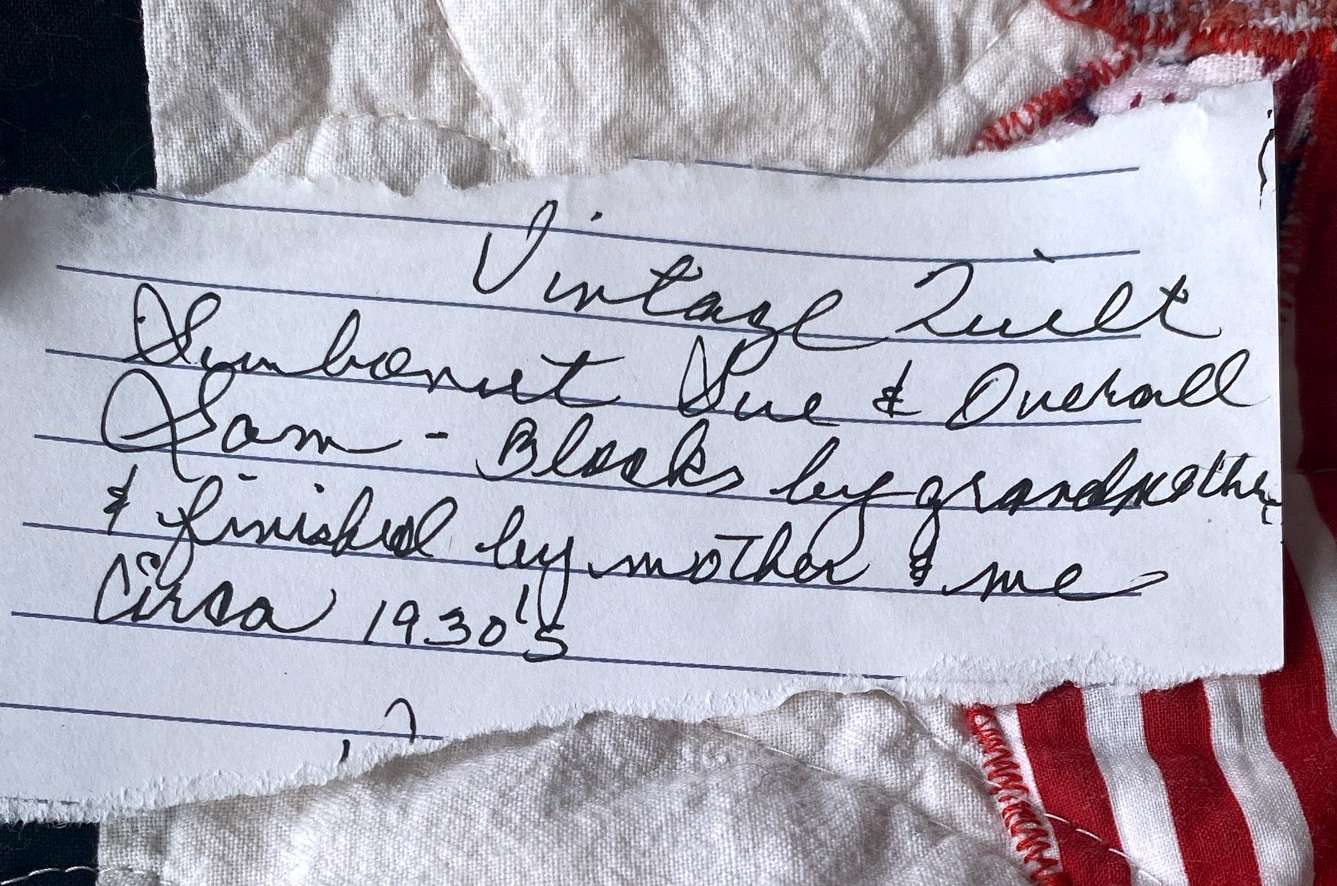 Vintage Quilt
Sunbonnet Sue & Overall
Sam - Blocks by grandmother
& finished by mother & me
Circa 1930's